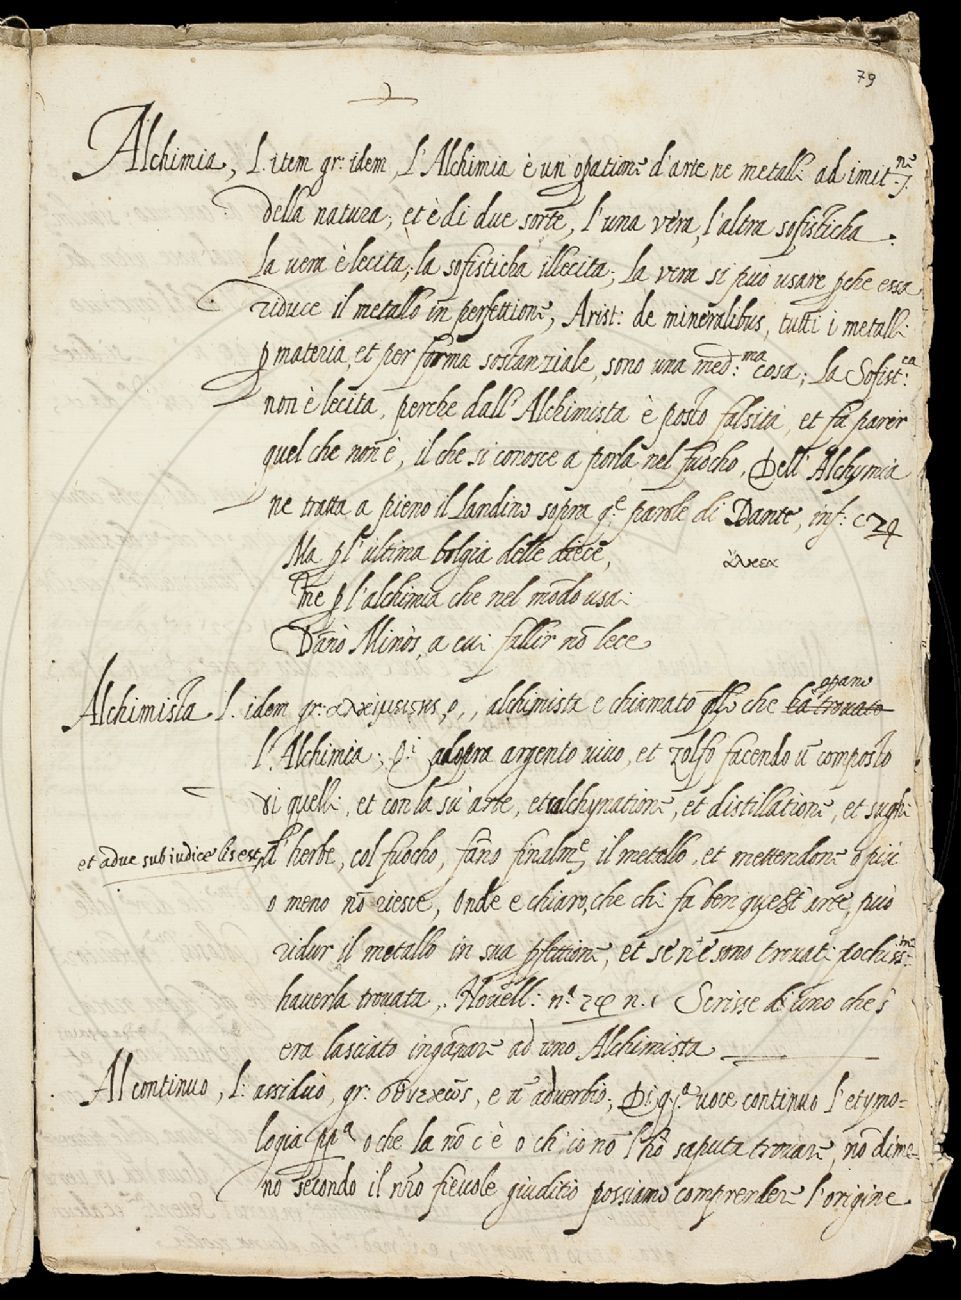 79
Alchimia, L. item gr: idem, L'Alchimia è un' opatione d'arte ne metalli ad imit.ne
della natura, et è di due sorte, l'una vera, l'altra sofisticha.
la vera è lecita, la sofisticha illecita, la vera si può usare pche essa
riduce il metallo in perfettione, Arist: de mineralibus, tutti i metalli
p materia, et per forma sostanziale, sono una med:ma cosa; la Sofist:ca
non è lecita, perche dall' Alchimista è posto falsità, et fa parer
quel che non è, il che si conosce a porla nel fuocho. Dell' Alchymia
ne tratta a pieno il Landino sopra q.e parole di Dante, inf: c 29
Ma p l'ultima bolgia delle diece,
me p l'alchimia che nel mōdo usai
Danò Minòs, a cui fallir nō lece
Alchimista L. idem gr: alchimista e chiamato qllo che ha trovato opano
l'Alchimia, adopra argento vivo, et zolfo facendo ū composto
di quelli, et con la su' arte, et calchynatione, et distillatione, et sughi
et adue sub iudice lis est, d' herbe, col fuocho, fāno finalm.e il metallo, et mettendone o più
o meno nō riesce, Onde e chiaro, che chi fa ben quest' arte, può
ridur il metallo in sua pfettione, et se ne sono trovati pochiss:mi
haverla trovata, Novell: n. Scrisse di uno che s'
era lasciato ingānare ad uno Alchimista
Al continuo, L: assiduò, gr: e ū adverbio, Di q.a voce continuo l'etymo-
logia pp.a o che la nō c'è o ch'io nō l'hò saputa trovare, nō dime-
no secondo il nrō fievole giuditio possiamo comprendere l'origine